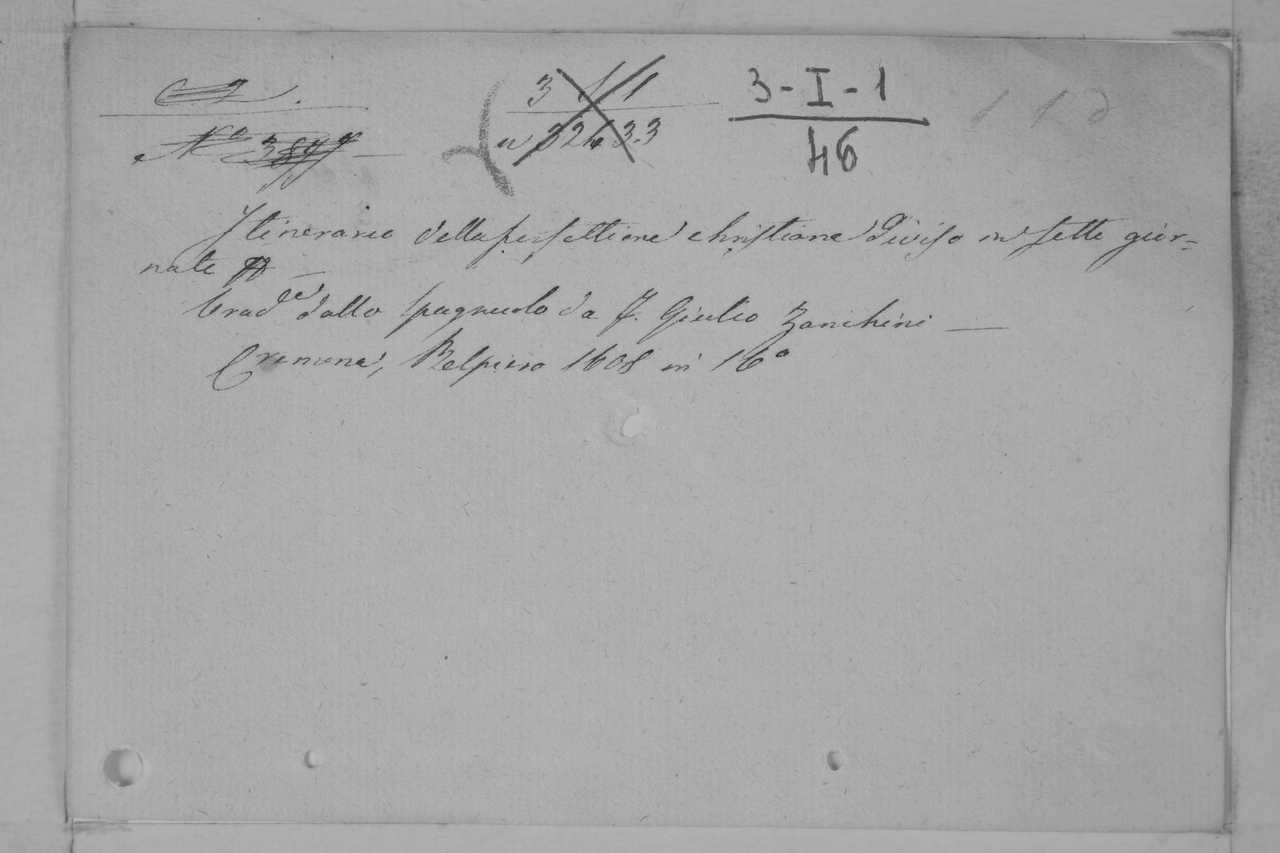 3-I-1
46
Itinerario della perfettione christiana Diviso in sette gior-
nate
Trad.e dallo spagnuolo da F. Giulio Zanchini
Cremona, Belpiero 1608 in 16º